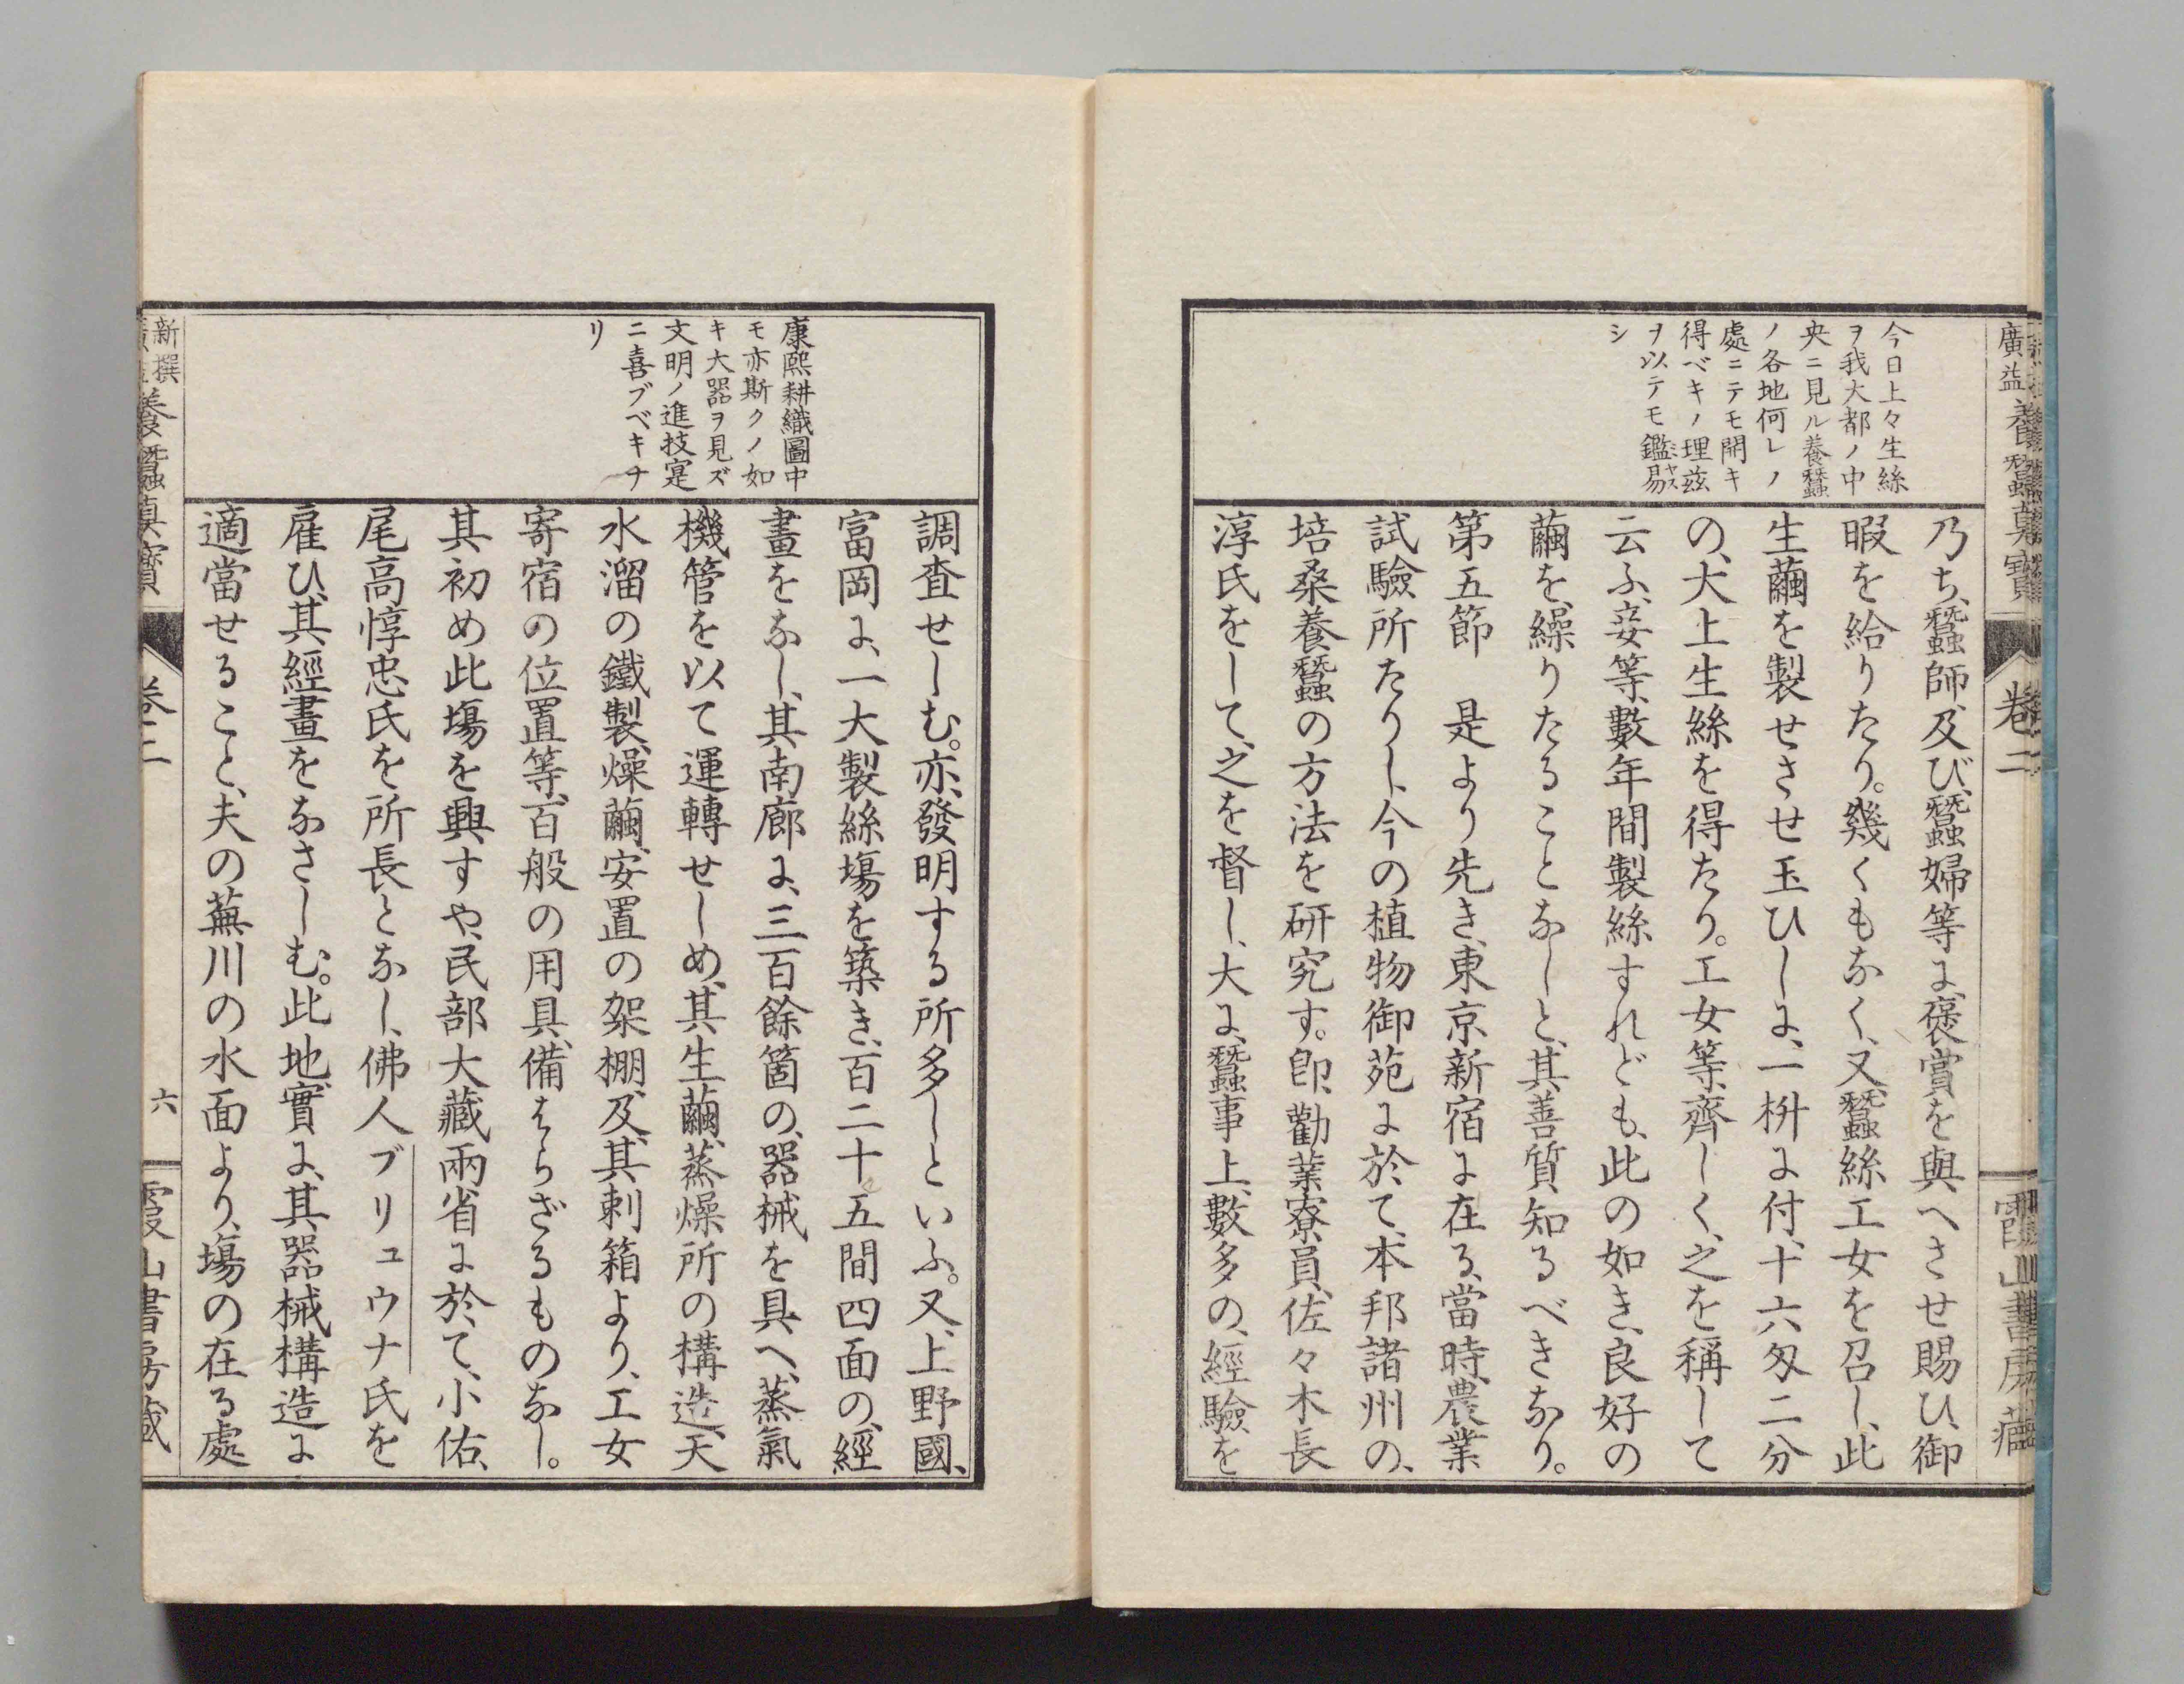 今日上々生絲
ヲ我大都ノ中
央ニ見ル養蠶
ノ各地何レノ
處ニテモ開キ
得ベキノ理茲
ヲ以テモ鑑易
ミヤス
シ
乃ち、蠶師、及び、蠶婦等に、褒賞を與へさせ賜ひ、御
暇を給りたり。幾くもなく、又、蠶絲工女を召し、此
生繭を製せさせ玉ひしに、一枡に付、十六匁二分
の、大上生絲を得たり。工女等、齊しく、之を稱して
云ふ、妾等、數年間製絲すれども、此の如き、良好の
繭を、繰りたることなしと、其善質、知るべきなり。
第五節　是より先き、東京新宿に在る、當時、農業
試驗所たりし、今の植物御苑に於て、本邦諸州の、
培桑養蠶の方法を研究す。卽、勸業寮員、佐々木長
淳氏をして、之を督し、大に、蠶事上、數多の、經驗を
廣益
養蠶眞寶
卷二
霞山書房藏
康熙耕織圖中
モ亦斯クノ如
キ大器ヲ見ズ
文明ノ進技寔
ニ喜ブベキナ
リ
調査せしむ。亦、發明する所多しといふ。又、上野國、
富岡に、一大製絲塲を築き、百二十五間四面の、經
畫をなし、其南廊に、三百餘箇の、器械を具へ、蒸氣
機管を以て運轉せしめ、其生繭、蒸燥所の構造、天
水溜の鐵製、燥繭、安置の架棚、及、其剌箱より、工女
寄宿の位置等、百般の用具、備はらざるものなし。
其初め此塲を興すや、民部大藏兩省に於て、小佑、
尾高惇忠氏を所長となし、佛人ブリュウナ氏を
雇ひ、其經畫をなさしむ。此地、實に、其器械構造に
適當せること、夫の蕪川の水面より、塲の在る處
新撰
養蠶眞寶
卷二
六
霞山書房藏